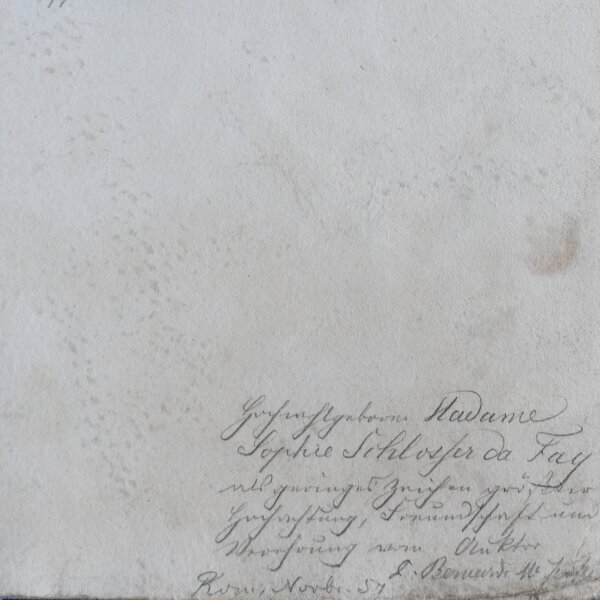 Hochwohlgeborne Madame
Sophie Schlosser da Fay
als geringes Zeichen größter
Hochachtung, Freundschaft und
Verehrung vom Auktor
Rom, Novbr. 57